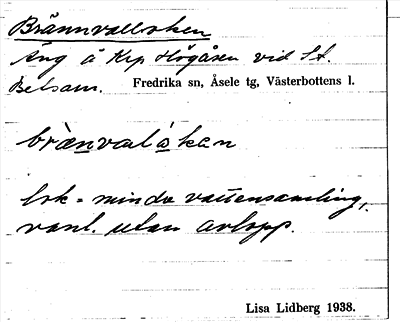 Brännvalloken
Äng å Krp Högåsen vid St.
Betsarn. Fredrika sn, Åsele tg, Västerbottens l.
brænval
= mindre vattensamling,
vanl. utan avlopp.
Lisa Lidberg 1938.